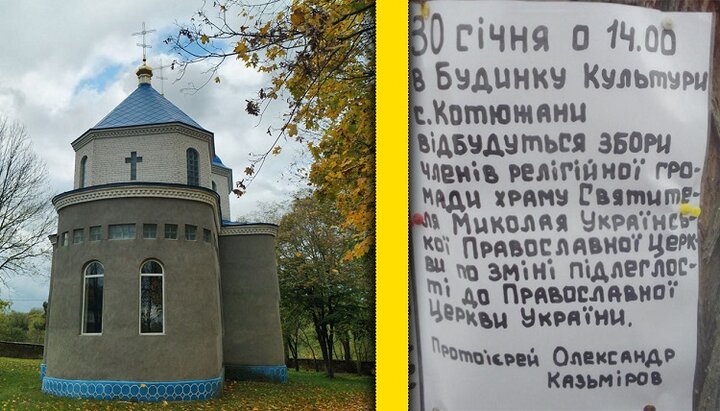 30 січня о 14.00
в Будинку Культури
с. Котюжани
відбудуться збори
членів релігійної гро-
мади храму Святите-
ля Миколая Українсь-
кої Православної Церк-
ви по зміні підлеглос-
ті до Православної
Церкви України.
Протоієрей Олександр
Казьміров